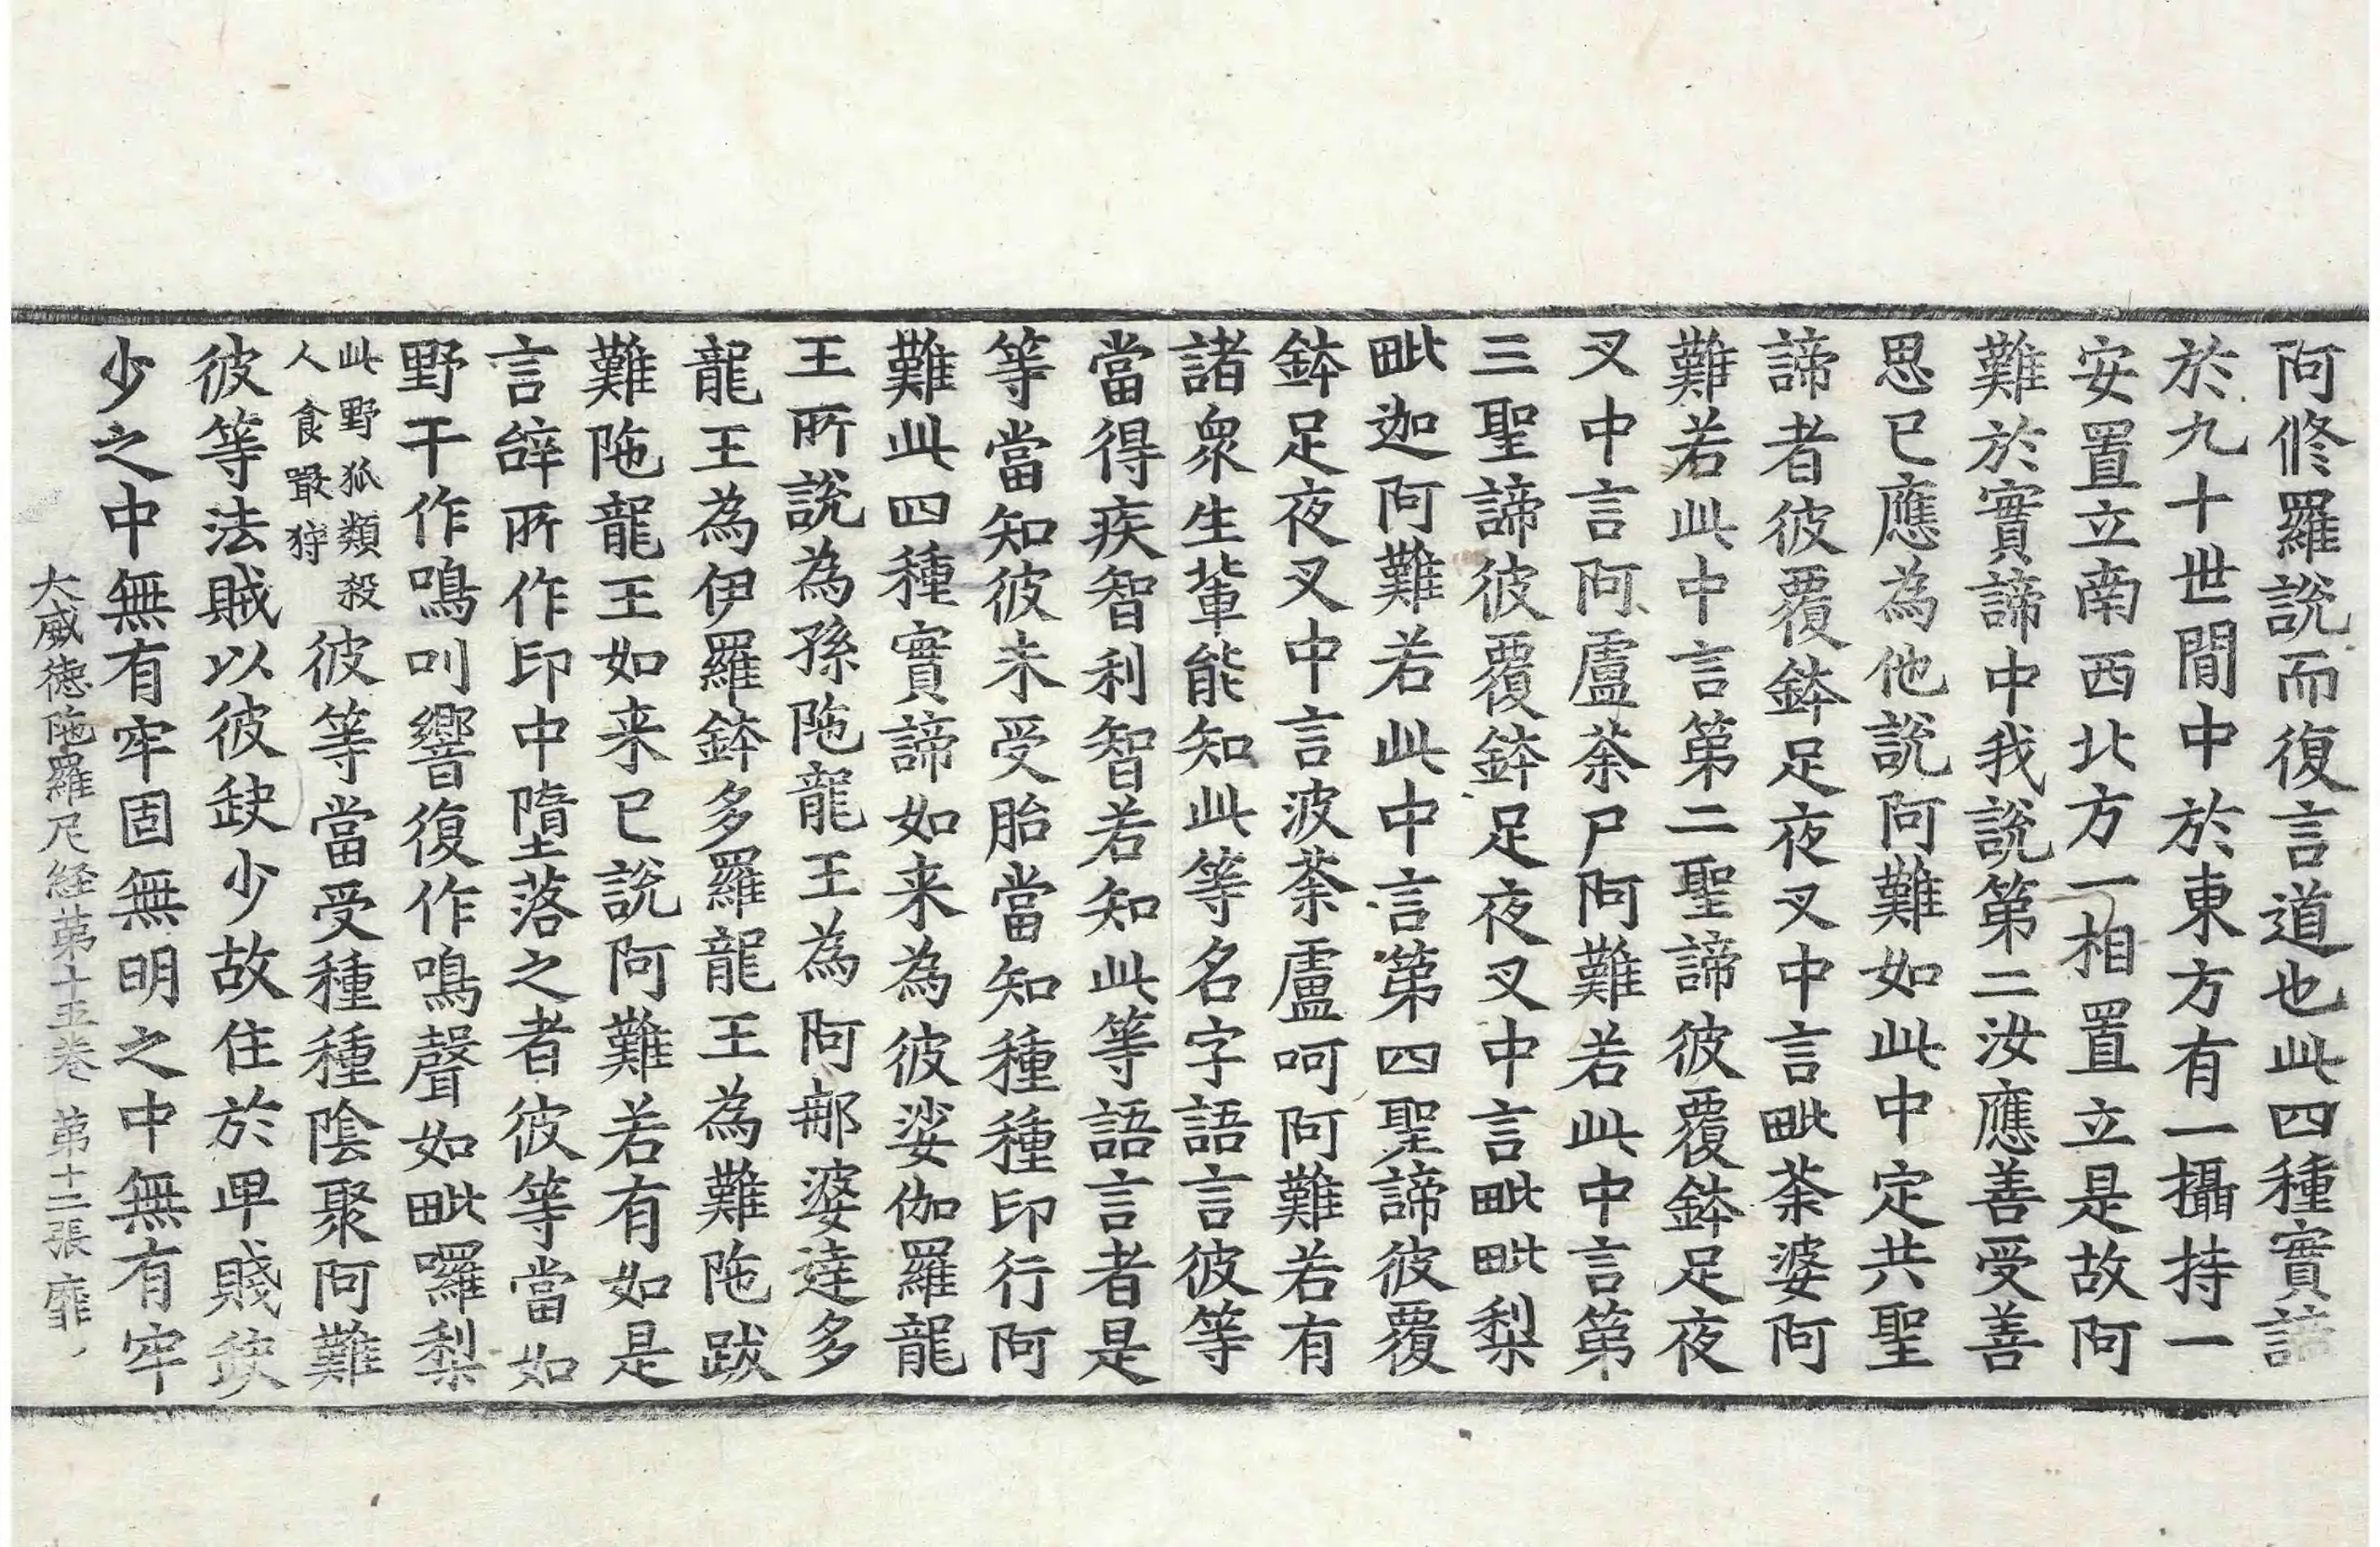 阿修羅説而復言道也此四種實諦
於九十世間中於東方有一攝持一
安置立南西北方一相置立是故阿
難於實諦中我説第二汝應善受善
思已應為他説阿難如此中定共聖
諦者彼覆鉢足夜叉中言毗荼婆阿
難若此中言第二聖諦彼覆鉢足夜
叉中言阿盧荼尸阿難若此中言第
三聖諦彼覆鉢足夜叉中言毗毗梨
毗迦阿難若此中言第四聖諦彼覆
鉢足夜叉中言波荼盧呵阿難若有
諸衆生輩能知此等名字語言彼等
當得疾智利智若知此等語言者是
等當知彼未受胎當知種種印行阿
難此四種實諦如来為彼娑伽羅龍
王所説為孫陁龍王為阿那婆達多
龍王為伊羅鉢多羅龍王為難陁跋
難陁龍王如来已説阿難若有如是
言辝所作印中墮落之者彼等當如
野干作鳴叫響復作鳴聲如毗囉梨
此野狐類殺
人食㝡狩
彼等當受種種陰聚阿難
彼等法賊以彼缺少故住於卑賤缺
少之中無有牢固無明之中無有牢
大威徳陁羅尼経第十五巻　第十二張　靡